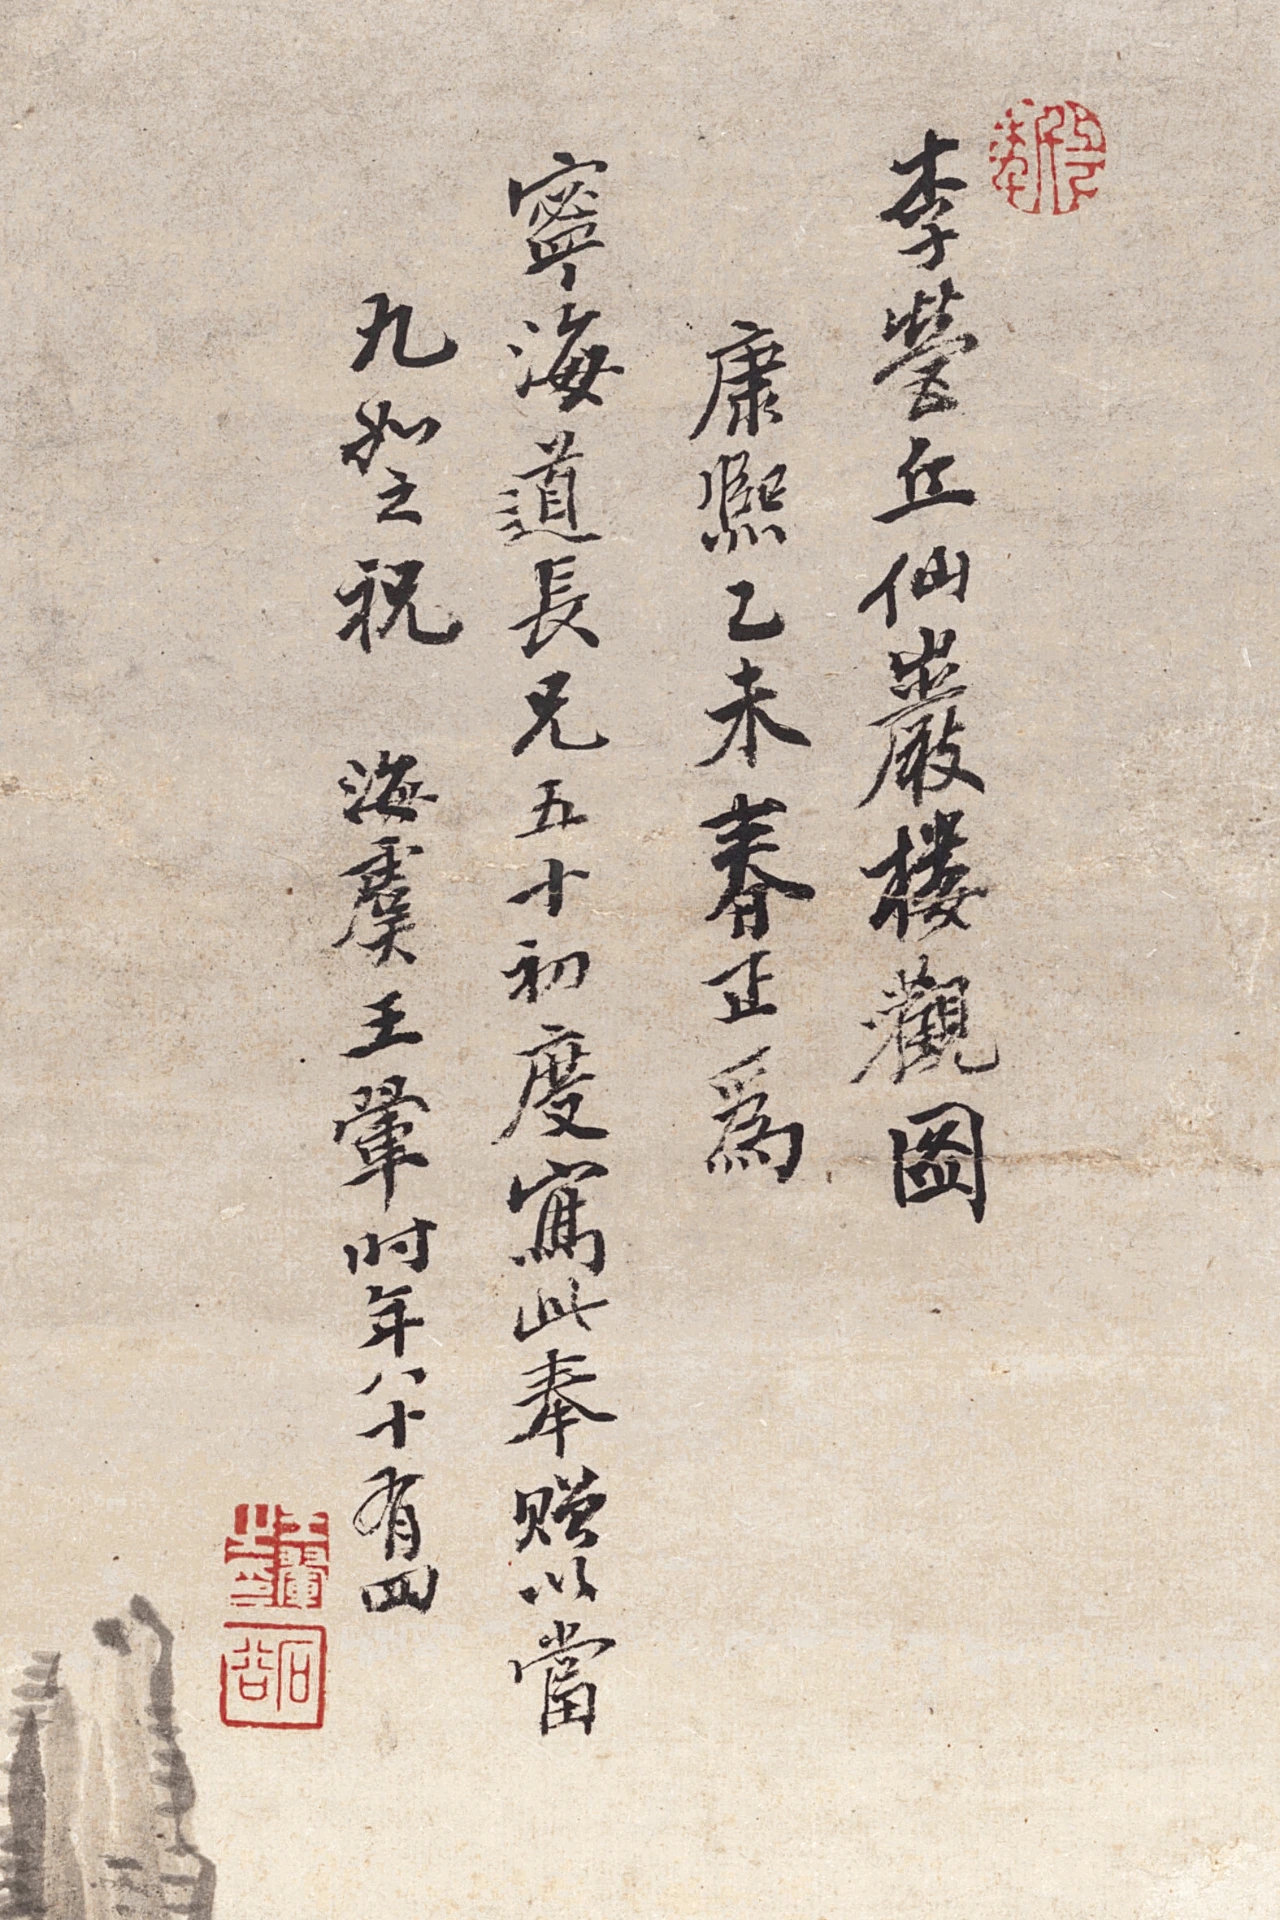 李營丘仙巖樓觀圖
康熙乙未春正爲
寧海道長兄五十初度寫此奉贈以當
九如之祝 海虞王翬時年八十有四
王翬之印
石谷